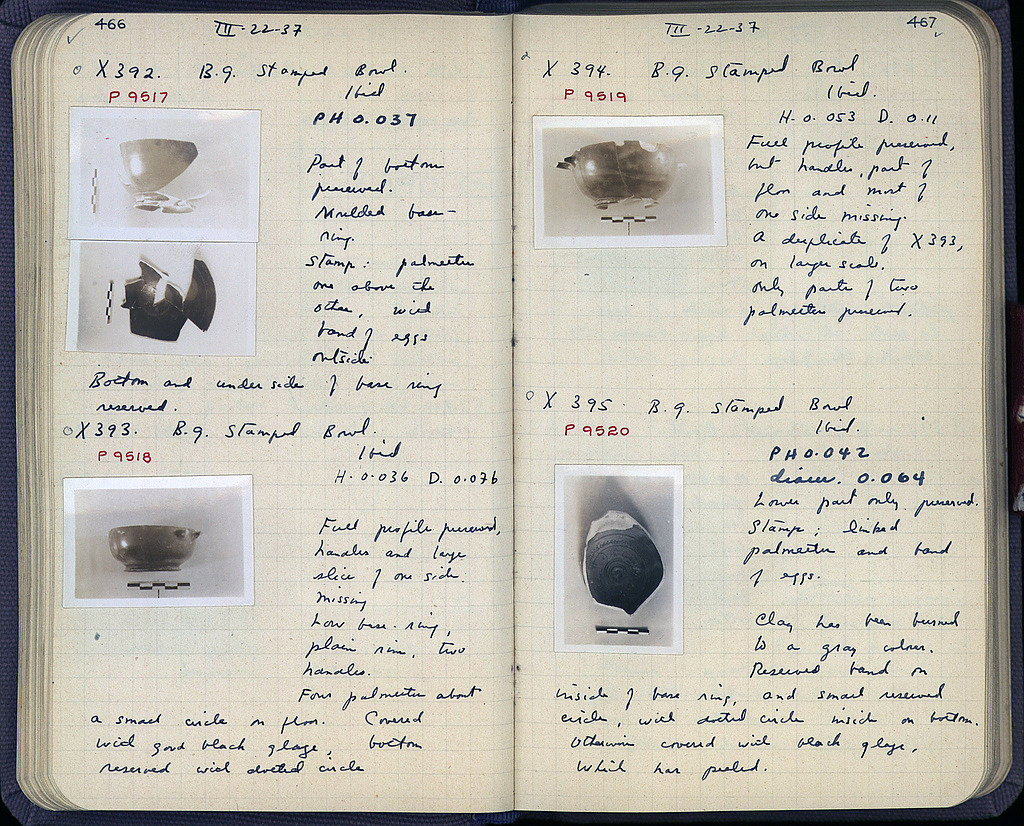 466
III-22-37
X 392. B.g. Stamped Bowl.
Ibid
P 9517
PH 0.037
Part of bottom
preserved.
Moulded base-
ring.
Stamp: palmettes
one above the
other, with
band of eggs
outside.
Bottom and under side of base ring
reserved.
X 393. B.g. Stamped Bowl.
Ibid
P 9518
H. 0.036 D. 0.076
Full profile preserved,
handles and large
slice of one side
missing
Low base-ring,
plain rim, two
handles.
Four palmettes about
a small circle on floor. Covered
with good black glaze, bottom
reserved with dotted circle
467
III-22-37
X 394. B.g. Stamped Bowl
Ibid.
P 9519
H. 0.053 D. 0.11
Full profile preserved,
but handles, part of
floor and most of
one side missing.
A duplicate of X 393,
on larger scale.
Only parts of two
palmettes preserved.
X 395. B.g. Stamped Bowl
Ibid.
P 9520
PH 0.042
diam. 0.064
Lower part only preserved.
Stamp; linked
palmettes and band
of eggs.
Clay has been burned
to a gray colour.
Reserved band on
inside of base ring, and small reserved
circle, with dotted circle inside on bottom.
Otherwise covered with black glaze,
which has peeled.